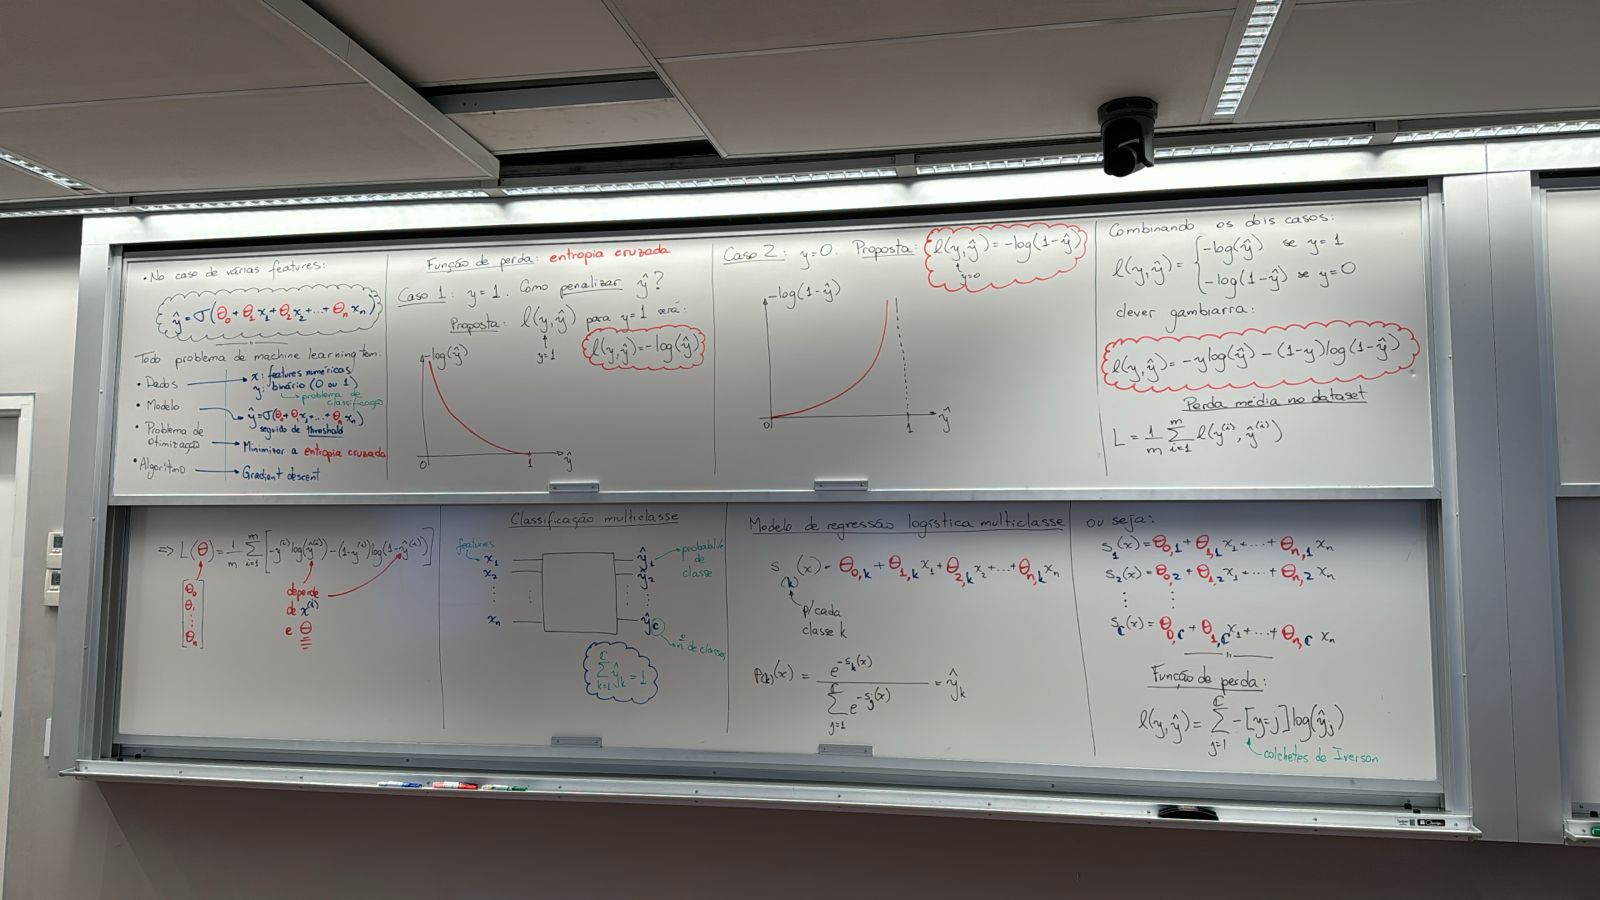 • No caso de várias features:
ŷ = σ(θ₀ + θ₁x₁ + θ₂x₂ + ... + θₙxₙ)
Todo problema de machine learning tem:
• Dados → x: features numéricas
y: binário (0 ou 1)
↳ problema de classificação
• Modelo → ŷ = σ(θ₀ + θ₁x₁ + ... + θₙxₙ)
seguido de threshold
• Problema de otimização → Minimizar a entropia cruzada
• Algoritmo → Gradient descent
Função de perda: entropia cruzada
Caso 1: y = 1. Como penalizar ŷ?
Proposta: ℓ(y, ŷ) para y = 1 será:
y=1
ℓ(y, ŷ) = -log(ŷ)
-log(ŷ)
0 1 ŷ
Caso 2: y = 0. Proposta: ℓ(y, ŷ) = -log(1-ŷ)
y=0
-log(1-ŷ)
0 1 ŷ
Combinando os dois casos:
ℓ(y, ŷ) = { -log(ŷ) se y = 1
-log(1-ŷ) se y = 0
clever gambiarra:
ℓ(y, ŷ) = -y log(ŷ) - (1-y) log(1-ŷ)
Perda média no dataset
L = 1/m Σ_{i=1}^{m} ℓ(y⁽ⁱ⁾, ŷ⁽ⁱ⁾)
⇒ L(θ) = 1/m Σ_{i=1}^{m} [-y⁽ⁱ⁾ log(ŷ⁽ⁱ⁾) - (1-y⁽ⁱ⁾) log(1-ŷ⁽ⁱ⁾)]
[θ₀
θ₁
⋮
θₙ]
depende
de x⁽ⁱ⁾
e θ
Classificação multiclasse
features
x₁
x₂
⋮
xₙ
ŷ₁
ŷ₂
⋮
ŷ_C
probabilid
de
classe
nº de classes
Σ_{k=1}^{C} ŷₖ = 1
Modelo de regressão logística multiclasse
s₍ₖ₎(x) = θ₀,ₖ + θ₁,ₖ x₁ + θ₂,ₖ x₂ + ... + θₙ,ₖ xₙ
p/cada
classe k
p₍ₖ₎(x) = e^{-sₖ(x)} / Σ_{j=1}^{C} e^{-sⱼ(x)} = ŷₖ
ou seja:
s₁(x) = θ₀,₁ + θ₁,₁ x₁ + ... + θₙ,₁ xₙ
s₂(x) = θ₀,₂ + θ₁,₂ x₁ + ... + θₙ,₂ xₙ
⋮ ⋮
s_C(x) = θ_{0,C} + θ_{1,C} x₁ + ... + θ_{n,C} xₙ
Função de perda:
ℓ(y, ŷ) = Σ_{j=1}^{C} -[y=j] log(ŷⱼ)
colchetes de Iverson